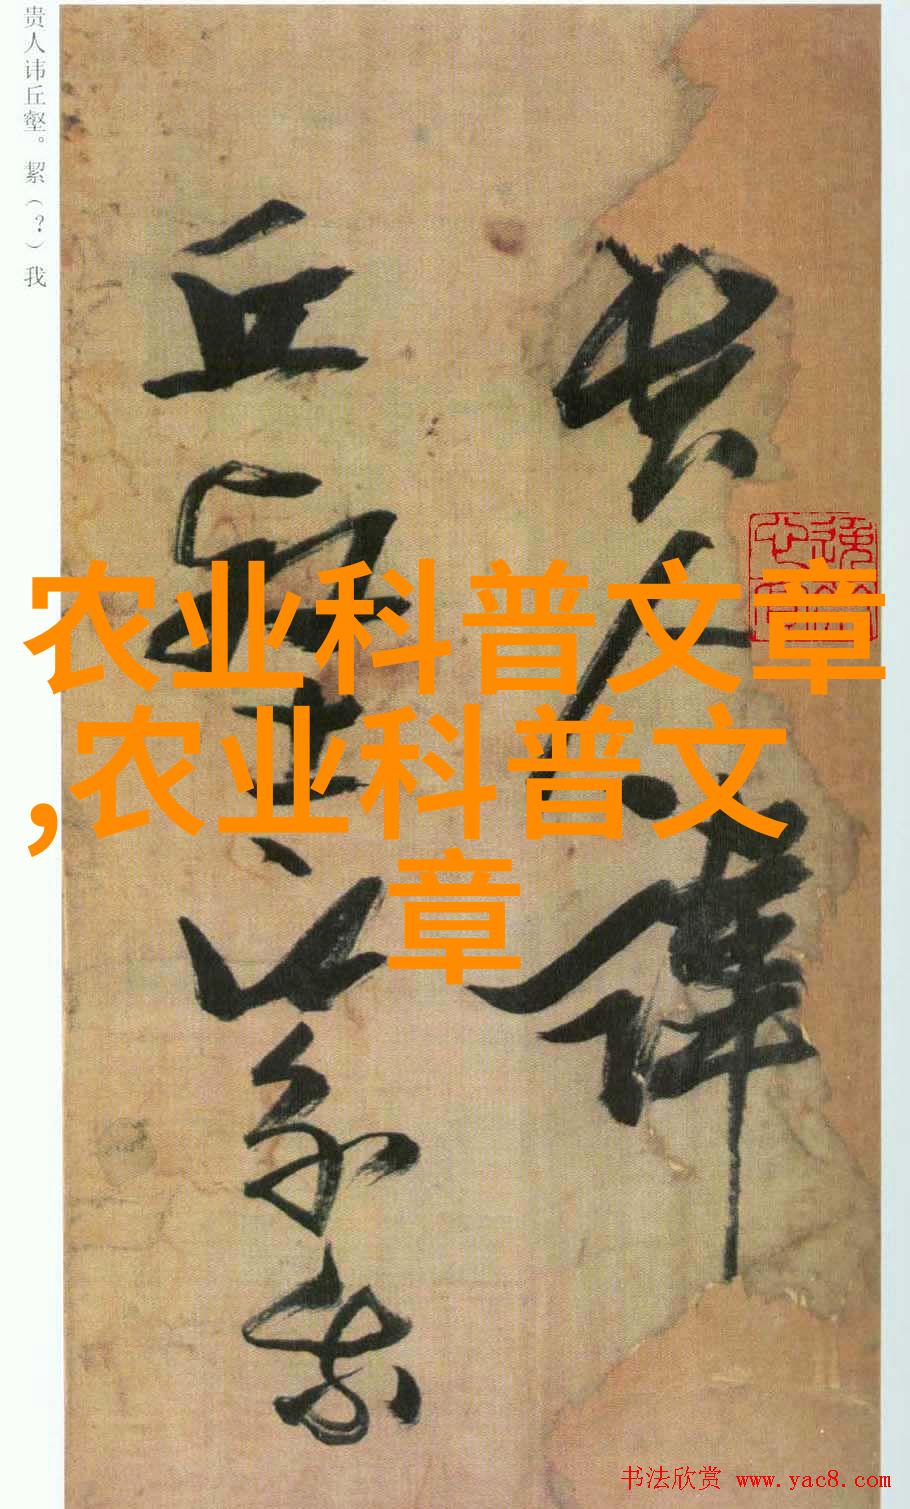 贵人讳丘壑。絜（？）我
贵人讳
丘壑之絜我
农业科普文章
,农业科普文
章
书法欣赏 www.yac8.com